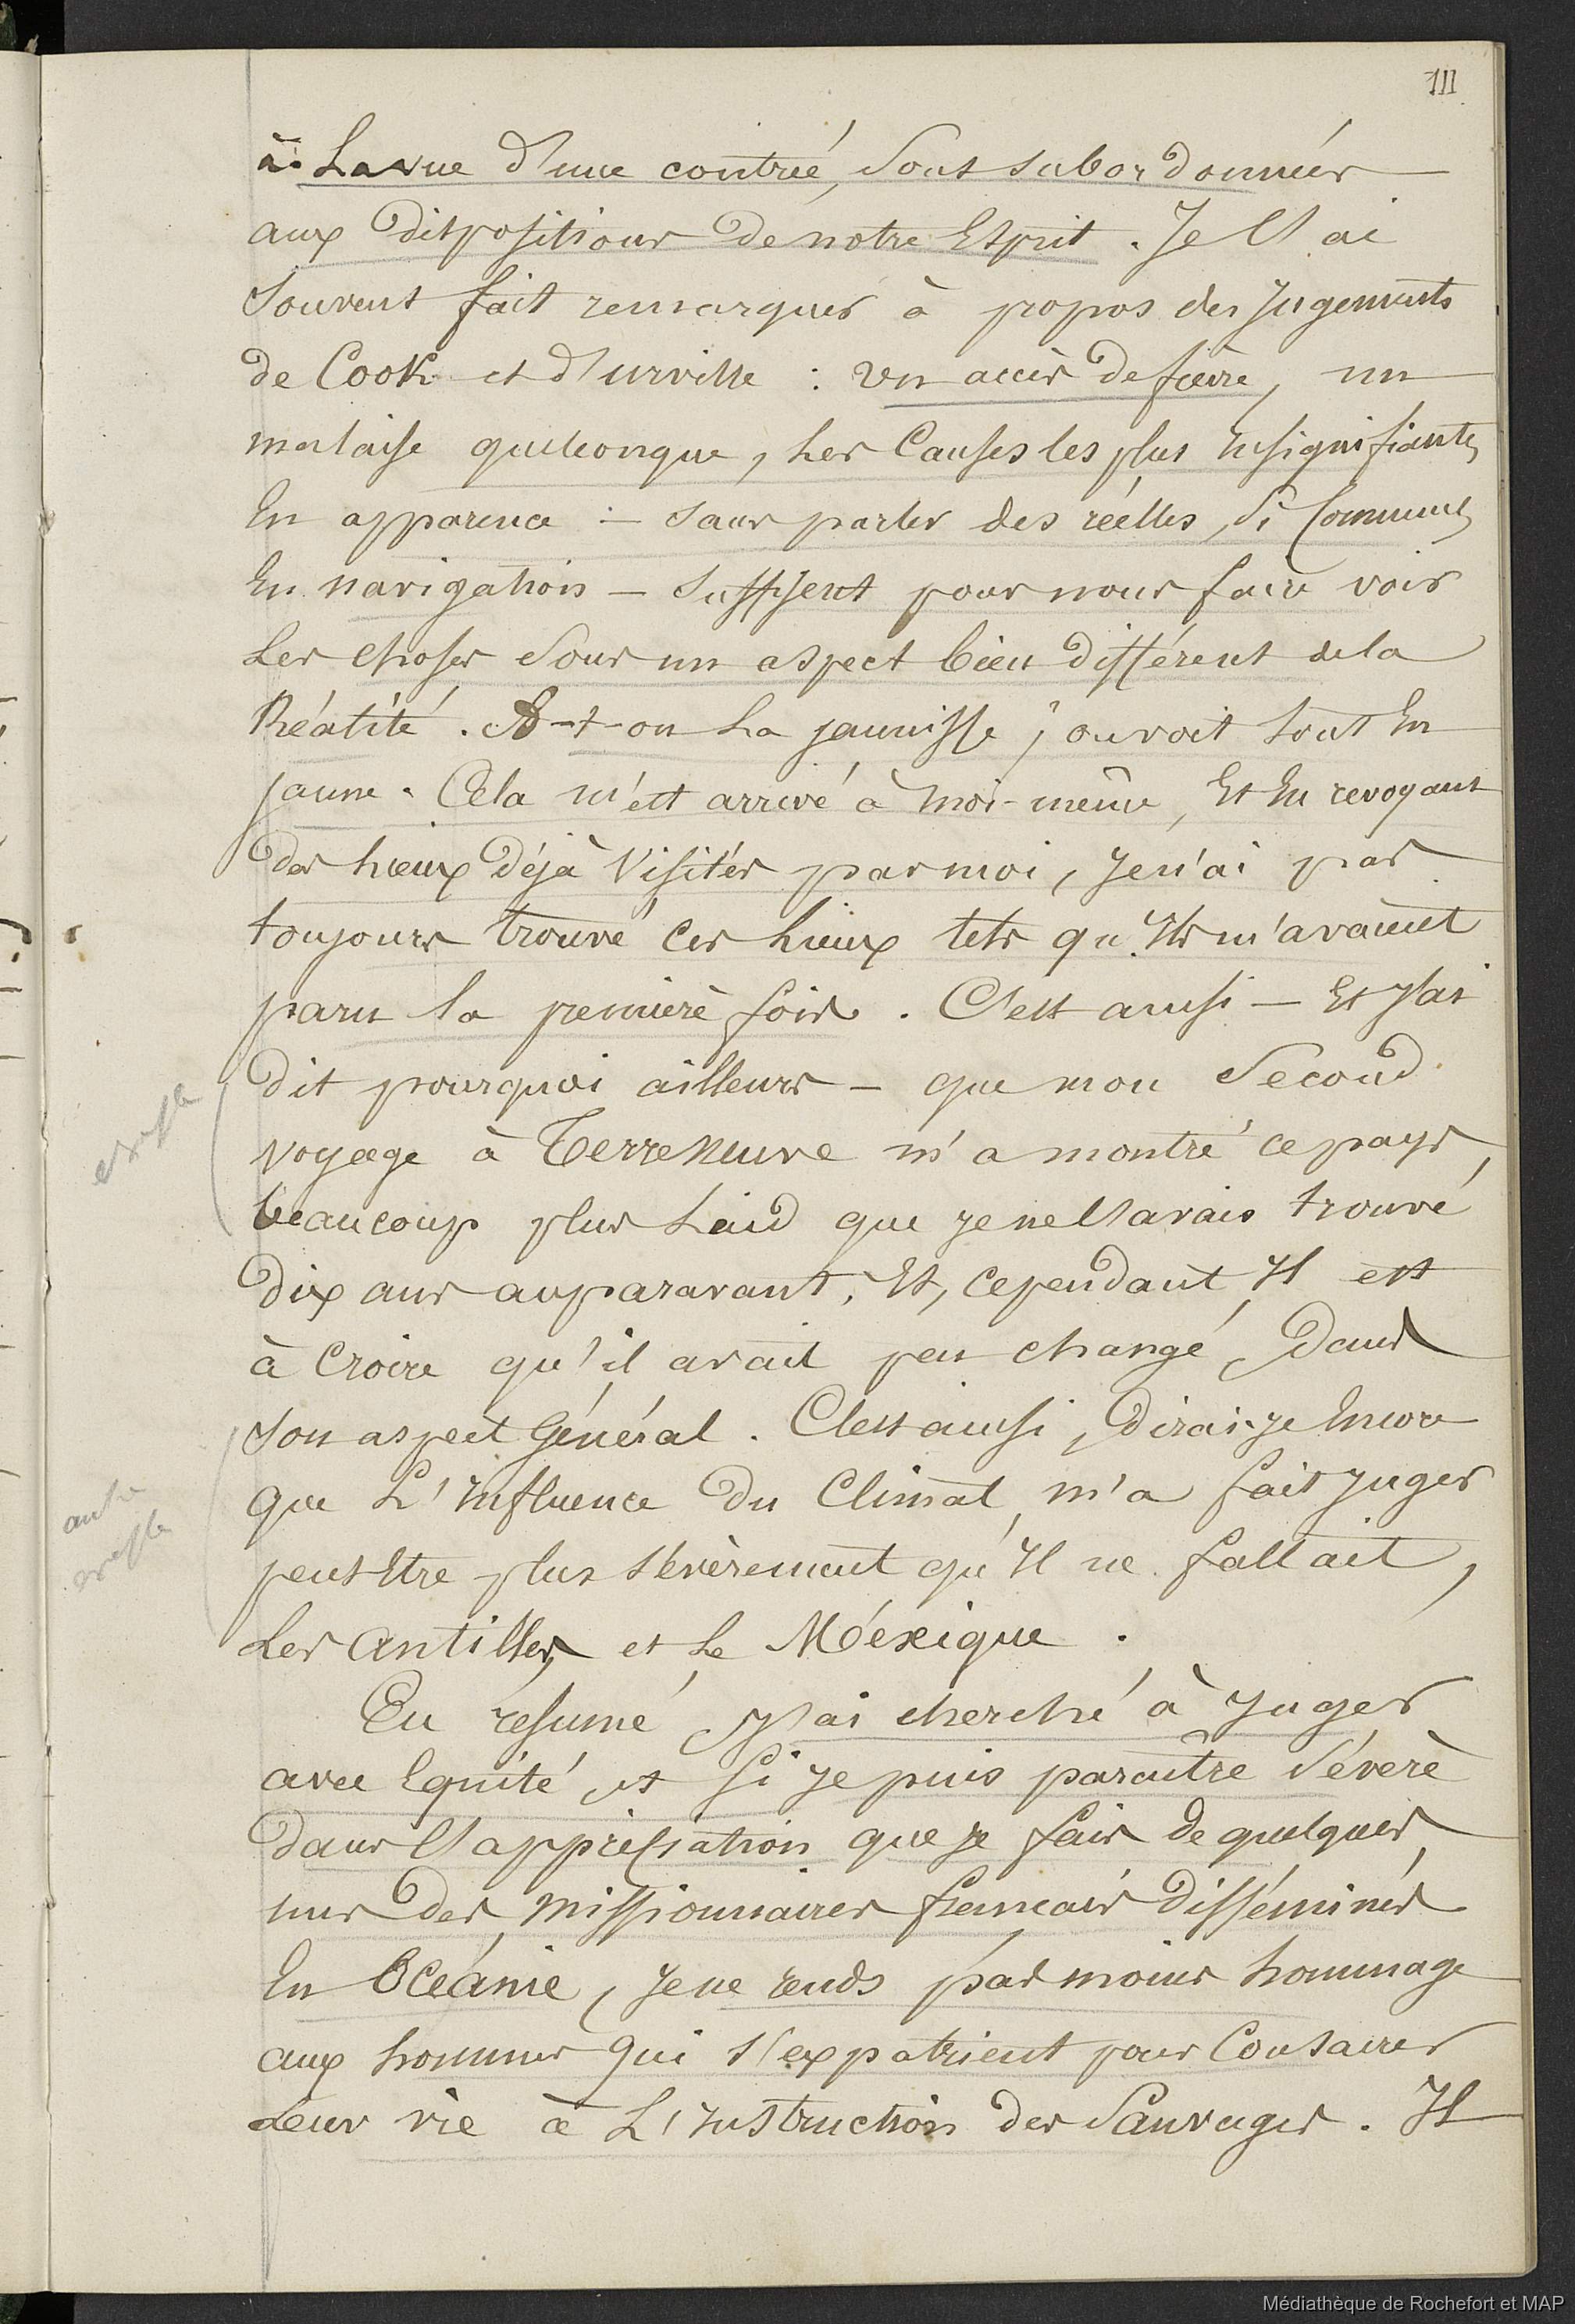 III
à La vue d'une contrée, Sont subordonnées
aux Dispositions de notre Esprit. Je l'ai
Souvent fait remarquer à propos des Jugements
de Cook et d'urville : un accès de fièvre, un
malaise quelconque, Les Causes les plus Insignifiantes
En apparence – sans parler des réelles, Si Communes
En navigation – Suffisent pour nous faire voir
Les choses Sous un aspect bien différent de la
Réalité. A-t-on La jaunisse, on voit tout En
Jaune. Cela m'est arrivé à moi-même, Et En revoyant
des Lieux Déjà Visités par moi, Je n'ai pas
toujours trouvé Ces Lieux tels qu'Ils m'avaient
paru la première fois. C'est ainsi – Et J'ai
dit pourquoi ailleurs – que mon Second
voyage à Terre Neuve m'a montré ce pays,
beaucoup plus Laid que je ne l'avais trouvé
Dix ans auparavant, Et, Cependant, Il est
à Croire qu'il avait peu changé, Dans
son aspect Général. C'est ainsi, Dirai-je Encore
que L'Influence du Climat, m'a fait Juger
peut Etre plus sévèrement qu'Il ne fallait,
Les Antilles, et Le Méxique.
En résumé, J'ai cherché à Juger
avec Equité, et Si Je puis paraître Sévère
dans l'appréciation que je fais de quelques
uns des missionnaires français disséminés
En Océanie, Je ne rends pas moins hommage
aux hommes qui s'expatrient pour Consacrer
Leur vie à L'Instruction des Sauvages. Il
Médiathèque de Rochefort et MAP